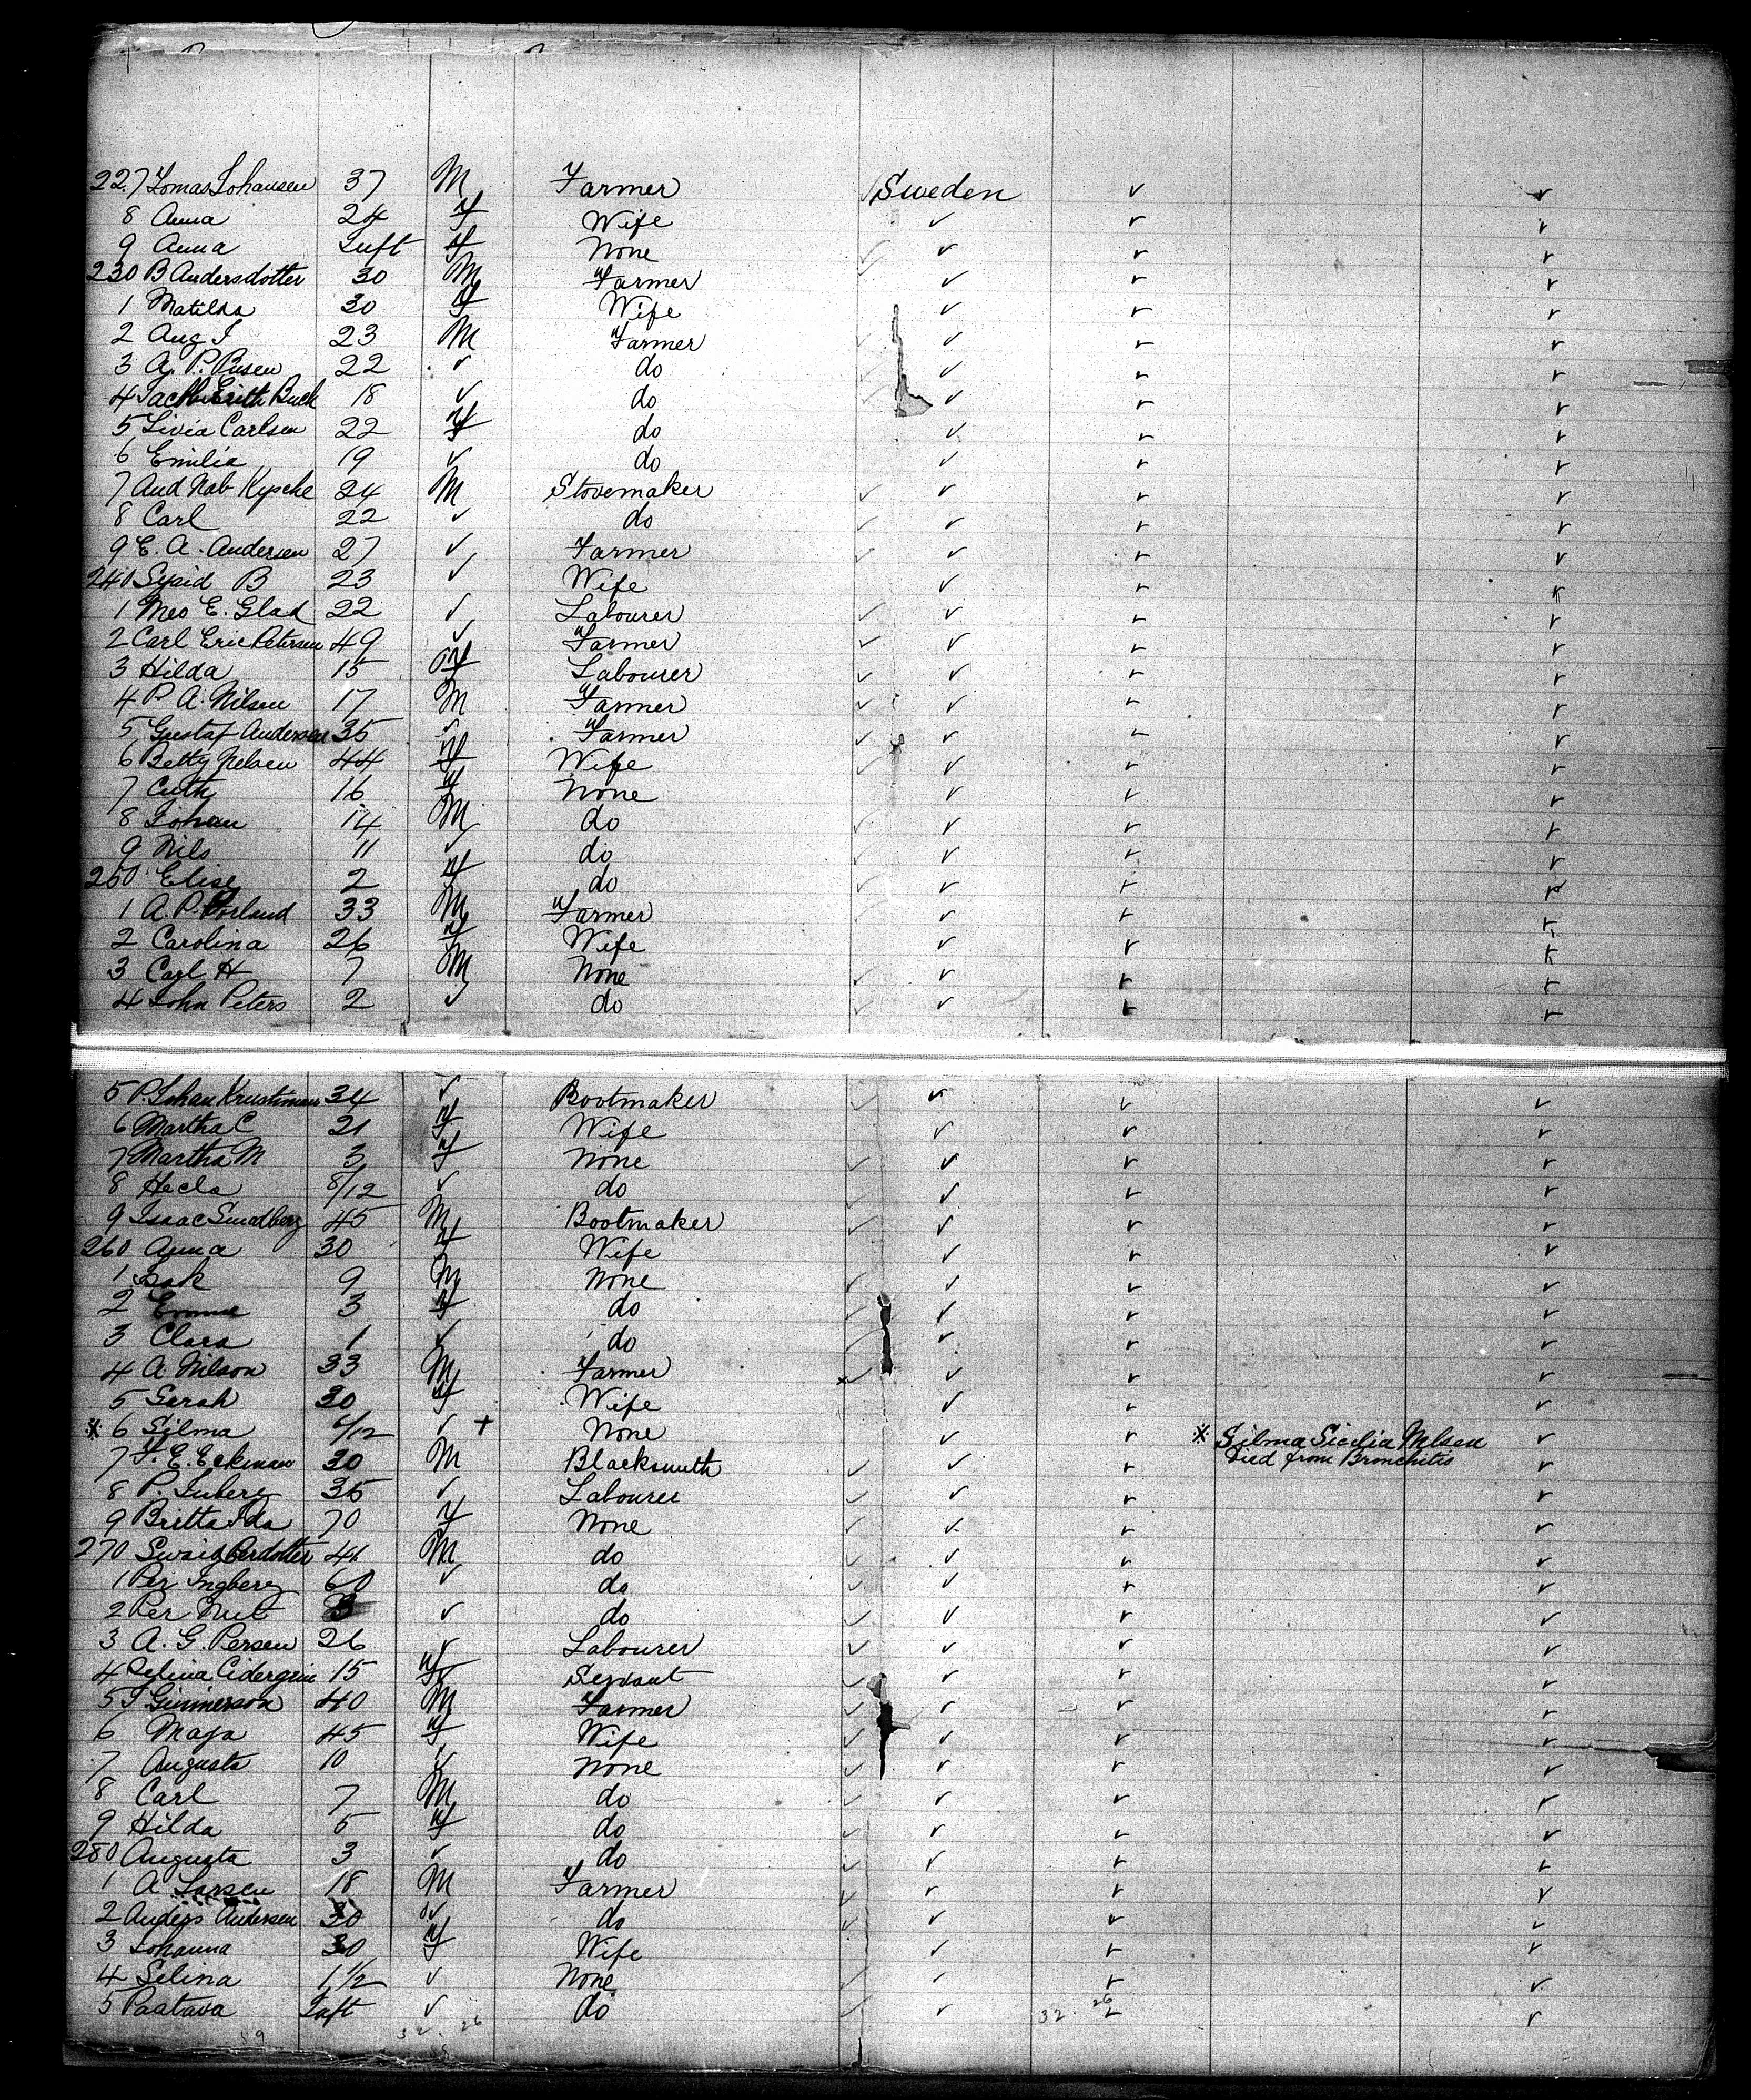 227 Tomas Johansen 37 M Farmer Sweden ✓ ✓
8 Anna 24 F Wife ✓ ✓ ✓
9 Anna Inft F None ✓ ✓ ✓
230 B Andersdotter 30 M Farmer ✓ ✓ ✓
1 Matilda 30 F Wife ✓ ✓ ✓
2 Aug J 23 M Farmer ✓ ✓ ✓
3 A. P. Busen 22 ✓ do ✓ ✓ ✓
4 Buck 18 ✓ do ✓ ✓ ✓
5 Livia Carlsen 22 F do ✓ ✓ ✓
6 Emilia 19 ✓ do ✓ ✓ ✓
7 Aud Nab Kysche 24 M Stovemaker ✓ ✓ ✓
8 Carl 22 ✓ do ✓ ✓ ✓
9 E. A. Andersen 27 ✓ Farmer ✓ ✓ ✓
240 B 23 ✓ Wife ✓ ✓ ✓
1 Mes E. Glad 22 ✓ Labourer ✓ ✓ ✓
2 Carl Eric Petersen 49 ✓ Farmer ✓ ✓ ✓
3 Hilda 15 F Labourer ✓ ✓ ✓
4 P. A. Nilsen 17 M Farmer ✓ ✓ ✓
5 Gustaf Andersen 35 ✓ Farmer ✓ ✓ ✓
6 Betty Nelsen 44 F Wife ✓ ✓ ✓
7 Cuth 16 F None ✓ ✓ ✓
8 Johan 14 M do ✓ ✓ ✓
9 Nils 11 ✓ do ✓ ✓ ✓
250 Elise 2 F do ✓ ✓ ✓
1 A. P. Porland 33 M Farmer ✓ ✓ ✓
2 Carolina 26 F Wife ✓ ✓ ✓
3 Carl H 7 M None ✓ ✓ ✓
4 John Peters 2 ✓ do ✓ ✓ ✓
5 P. Johan 34 ✓ Bootmaker ✓ ✓ ✓
6 Martha C 21 F Wife ✓ ✓ ✓
7 Martha M 3 F None ✓ ✓ ✓
8 Hecla 8/12 ✓ do ✓ ✓ ✓
9 Isaac Smalberg 45 M Bootmaker ✓ ✓ ✓
260 Anna 30 F Wife ✓ ✓ ✓
1 Isak 9 M None ✓ ✓ ✓
2 Emma 3 F do ✓ ✓ ✓
3 Clara 1 ✓ do ✓ ✓ ✓
4 A. Nilson 33 M Farmer ✓ ✓ ✓
5 Sarah 30 F Wife ✓ ✓ ✓
※ 6 Silma 6/12 ✓ + None ✓ ✓ ※ Silma Sicilia Nelsen ✓
Died from Bronchitis
7 F. E. Eckman 30 M Blacksmith ✓ ✓ ✓
8 P. Inberg 35 ✓ Labourer ✓ ✓ ✓
9 Britta Ida 70 F None ✓ ✓ ✓
270 Perdotter 41 M do ✓ ✓ ✓
1 Per Ingberg 60 ✓ do ✓ ✓ ✓
2 Per 3 ✓ do ✓ ✓ ✓
3 A. G. Persen 26 ✓ Labourer ✓ ✓ ✓
4 Selina Cidergrin 15 F Servant ✓ ✓ ✓
5 J Gunnerson 40 M Farmer ✓ ✓ ✓
6 Maja 45 F Wife ✓ ✓ ✓
7 Augusta 10 ✓ None ✓ ✓ ✓
8 Carl 7 M do ✓ ✓ ✓
9 Hilda 5 F do ✓ ✓ ✓
280 Augusta 3 ✓ do ✓ ✓ ✓
1 A Larsen 18 M Farmer ✓ ✓ ✓
2 Anders Andersen 30 ✓ do ✓ ✓ ✓
3 Johanna 30 F Wife ✓ ✓ ✓
4 Selina 1 1/2 ✓ None ✓ ✓ ✓
5 Paatava Inft ✓ do ✓ ✓ ✓
59 32. 26 32. 26